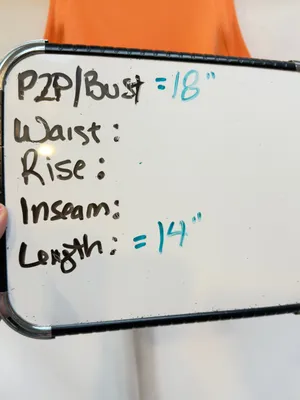 P2P/Bust = 18"
Waist:
Rise:
Inseam:
Length: = 14"